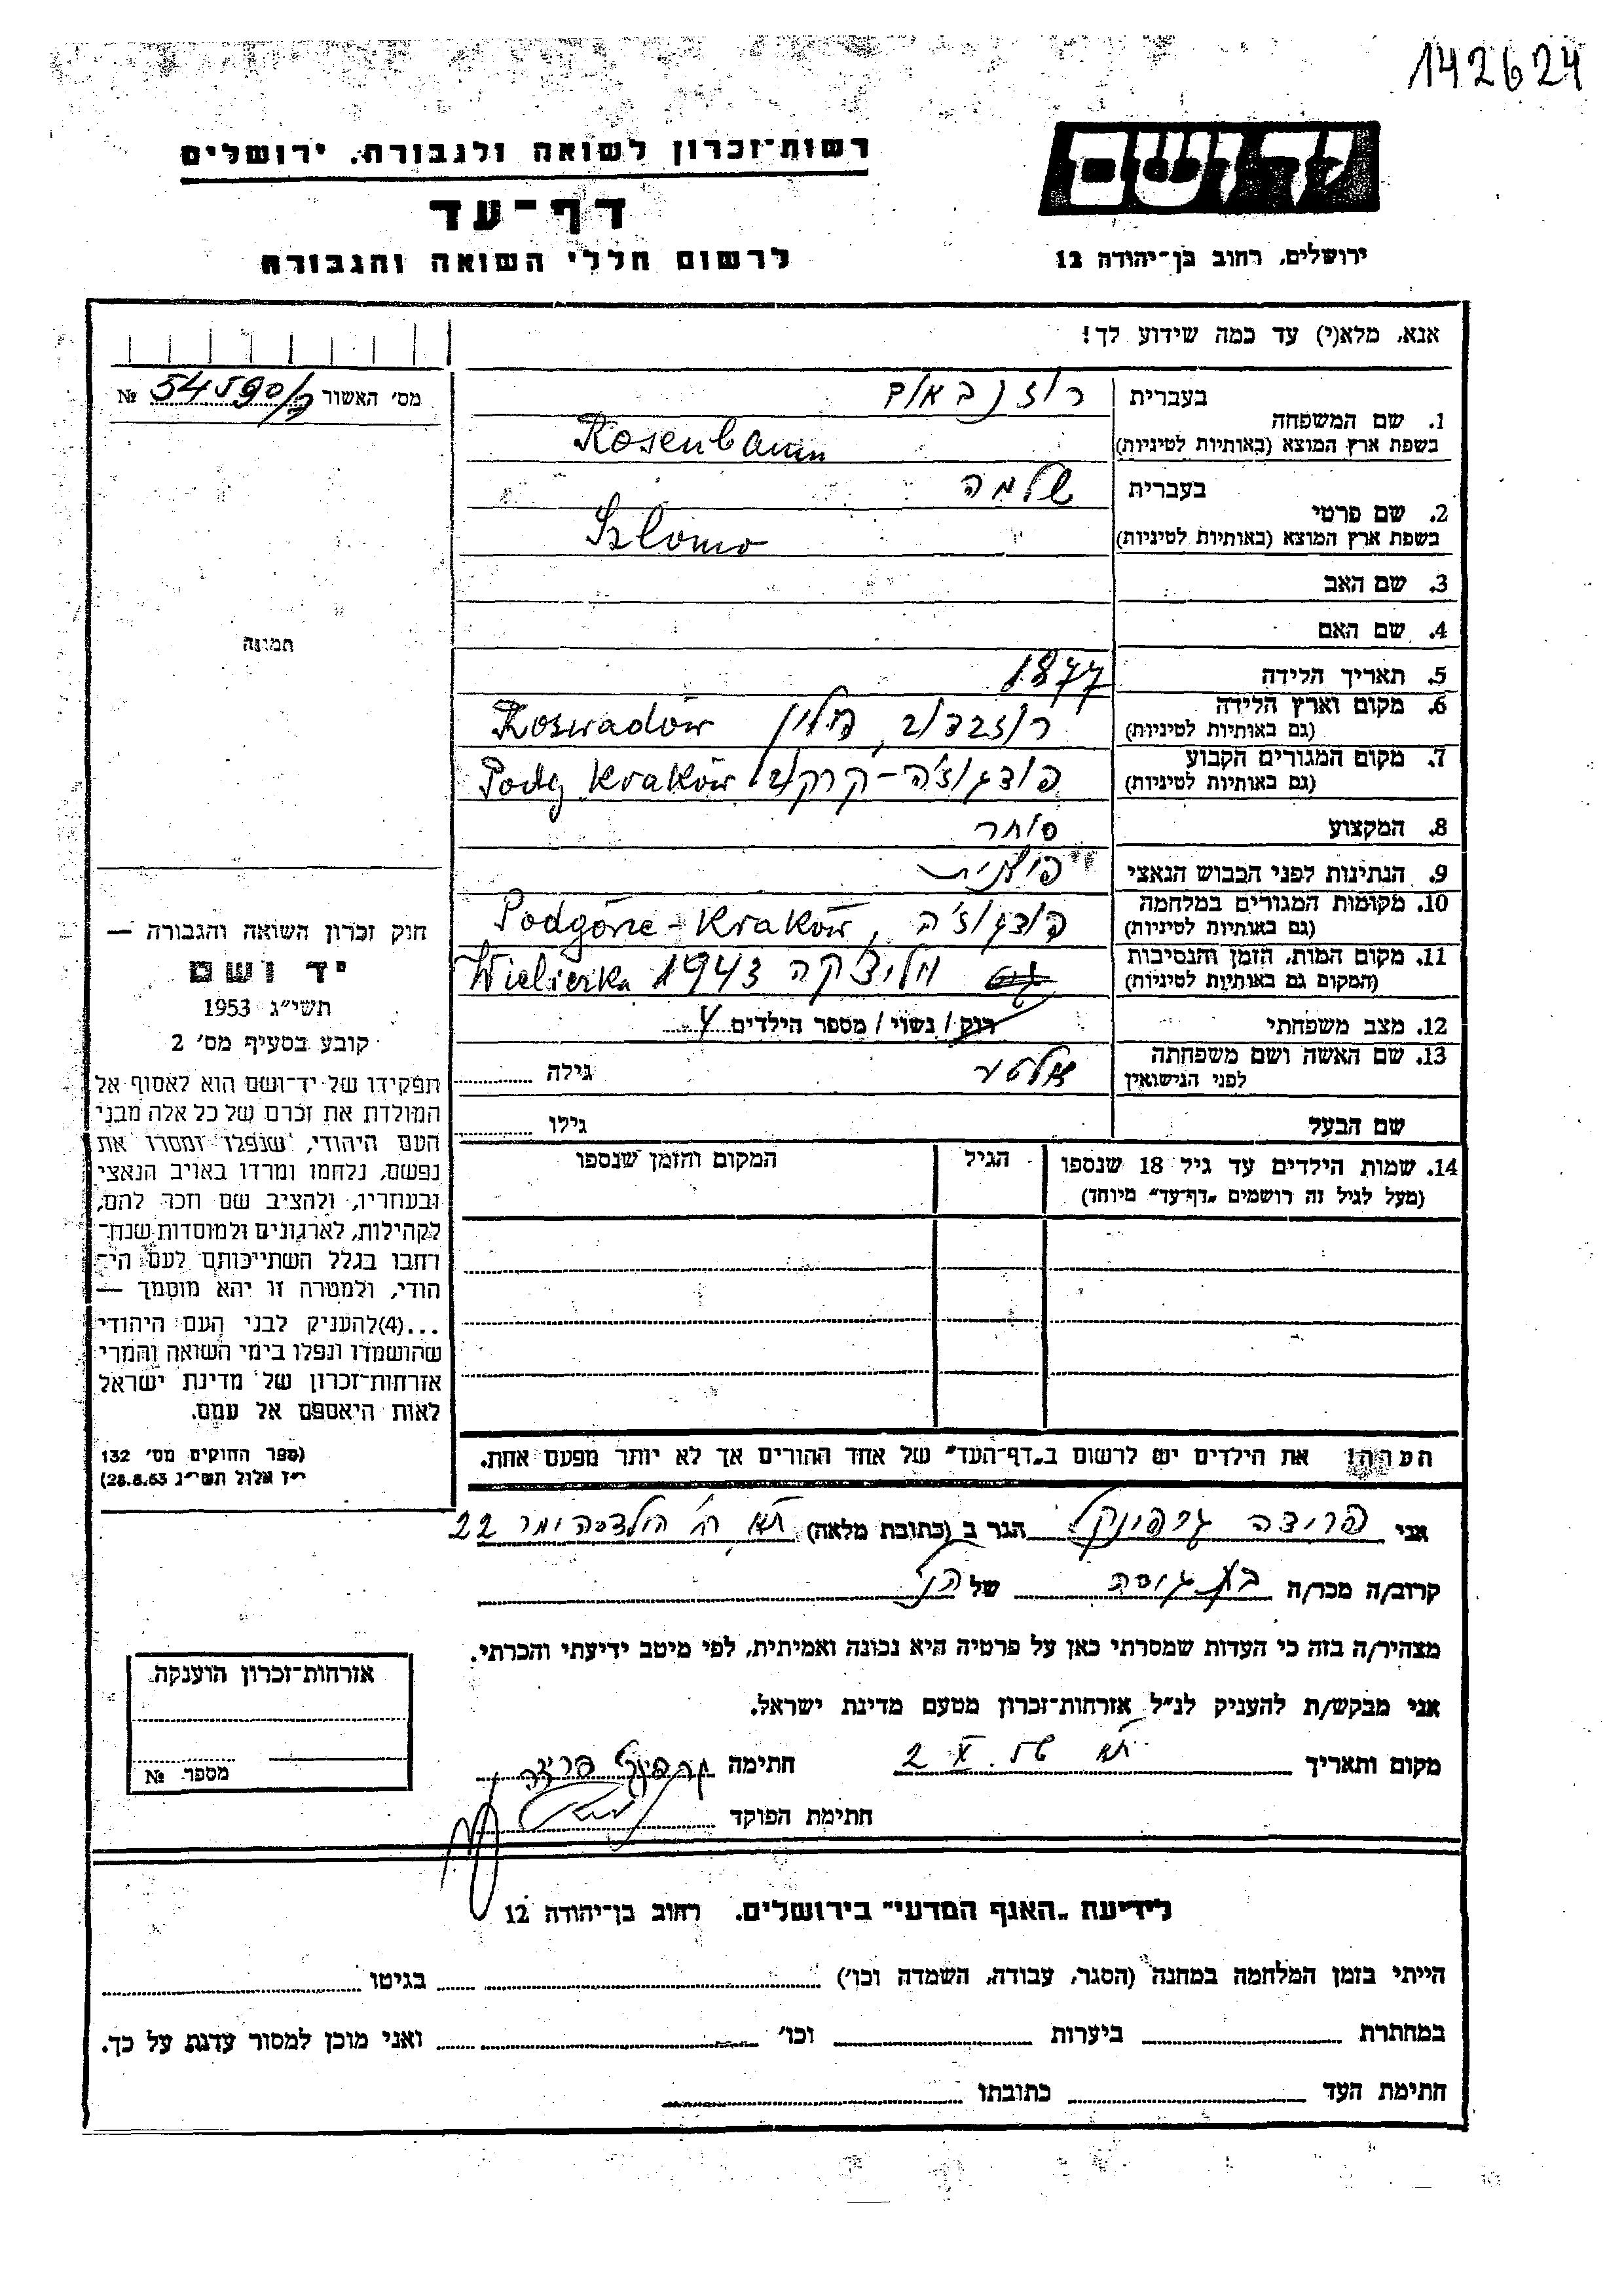 142624
רשות־זכרון לשואה ולגבורה. ירושלים
דף־עד
לרשום חללי השואה והגבורה
ידושם
ירושלים, רחוב בן־יהודה 12
אנא, מלא(י) עד כמה שידוע לך!
מס׳ האשור 54590 №
בעברית רוזנבאום
1. שם המשפחה
בשפת ארץ המוצא (באותיות לטיניות) Rosenbaum
בעברית שלמה
2. שם פרטי
בשפת ארץ המוצא (באותיות לטיניות) Szlomo
3. שם האב
4. שם האם
תמונה
5. תאריך הלידה 1877
6. מקום וארץ הלידה
(גם באותיות לטיניות) רוזבדוב, פולין Roswadów
7. מקום המגורים הקבוע
(גם באותיות לטיניות) פודגוז׳ה-קרקוב Podg Kraków
8. המקצוע סוחר
9. הנתינות לפני הכבוש הנאצי פולנית
10. מקומות המגורים במלחמה
(גם באותיות לטיניות) פודגוז׳ה, Podgórze-Kraków
11. מקום המות, הזמן והנסיבות
(המקום גם באותיות לטיניות) וליצ׳קה 1943 Wieliczka
12. מצב משפחתי רוק / נשוי / מספר הילדים 4
13. שם האשה ושם משפחתה
לפני הנישואין גילה
שם הבעל גילו
14. שמות הילדים עד גיל 18 שנספו הגיל המקום והזמן שנספו
(מעל לגיל זה רושמים „דף־עד״ מיוחד)
הערה! את הילדים יש לרשום ב„דף־העד״ של אחד ההורים אך לא יותר מפעם אחת.
חוק זכרון השואה והגבורה —
יד ושם
תשי״ג 1953
קובע בסעיף מס׳ 2
תפקידו של יד־ושם הוא לאסוף אל
המולדת את זכרם של כל אלה מבני
העם היהודי, שנפלו ומסרו את
נפשם, נלחמו ומרדו באויב הנאצי
ובעוזריו, ולהציב שם וזכר להם,
לקהילות, לארגונים ולמוסדות שנח־
רחבו בגלל השתייכותם לעם הי־
הודי, ולמטרה זו יהא מוסמך —
...(4)להעניק לבני העם היהודי
שהושמדו ונפלו בימי השואה והמרי
אזרחות־זכרון של מדינת ישראל
לאות היאספם אל עמם.
(ספר החוקים מס׳ 132
י״ז אלול תשי״ג 28.8.53)
אני פרידה גרפינקל הגר ב (כתובת מלאה) תא רח׳ הילדסהימר 22
קרוב/ה מכר/ה של הנ״ל
מצהיר/ה בזה כי העדות שמסרתי כאן על פרטיה היא נכונה ואמיתית, לפי מיטב ידיעתי והכרתי.
אני מבקש/ת להעניק לנ״ל אזרחות־זכרון מטעם מדינת ישראל.
מקום ותאריך תא 2 X. חתימה
חתימת הפוקד
אזרחות־זכרון הוענקה
מספר №
לידיעת „האגף המדעי״ בירושלים. רחוב בן־יהודה 12
הייתי בזמן המלחמה במחנה (הסגר, עבודה, השמדה וכו׳) בגיטו
במחתרת ביערות וכו׳ ואני מוכן למסור עדות על כך.
חתימת העד כתובתו